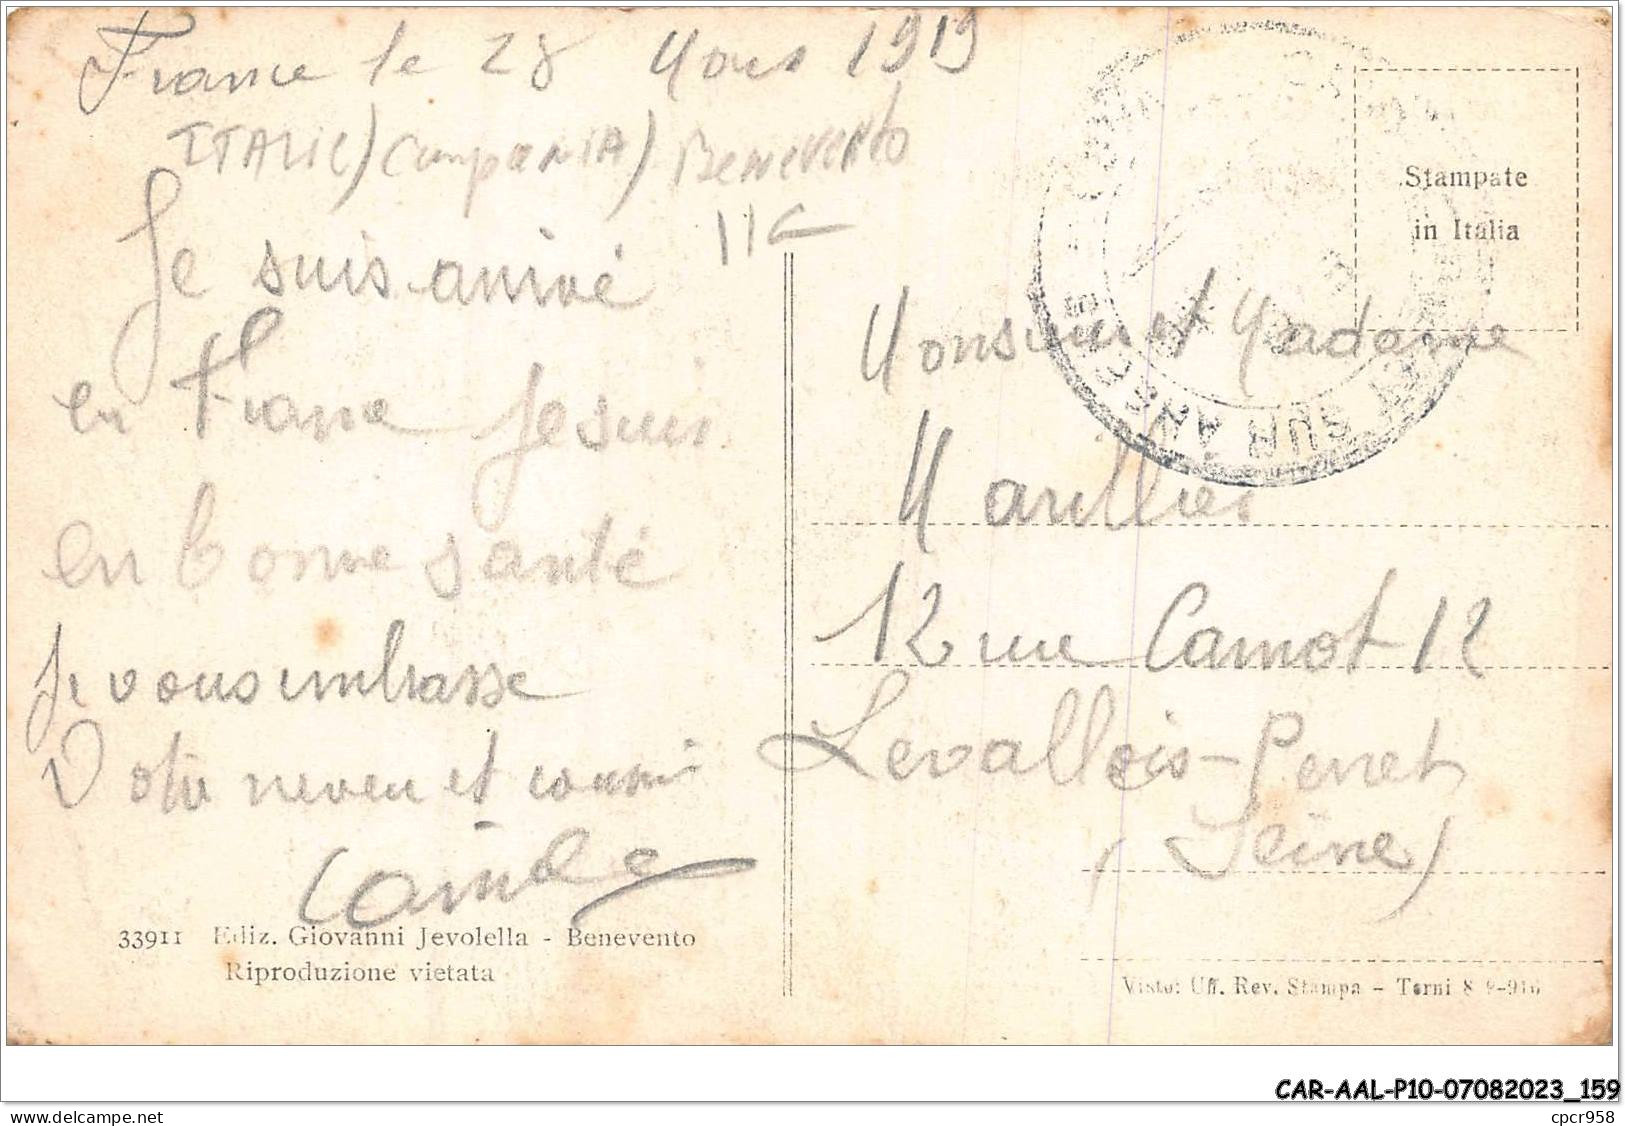 France le 28 Mars 1919
ITALIE) Campania) Benevento
11€
Je suis arrivé
en France Je suis
en bonne santé
Je vous embrasse
Votre neveu et cousin
Camille
33911 Ediz. Giovanni Jevolella - Benevento
Riproduzione vietata
Stampate
in Italia
SUR ANSE
Monsieur et Madame
Marillier
12 rue Carnot 12
Levallois-Perret
(Seine)
Visto: Uff. Rev. Stampa - Terni
CAR-AAL-P10-07082023_159
www.delcampe.net
cpcr958